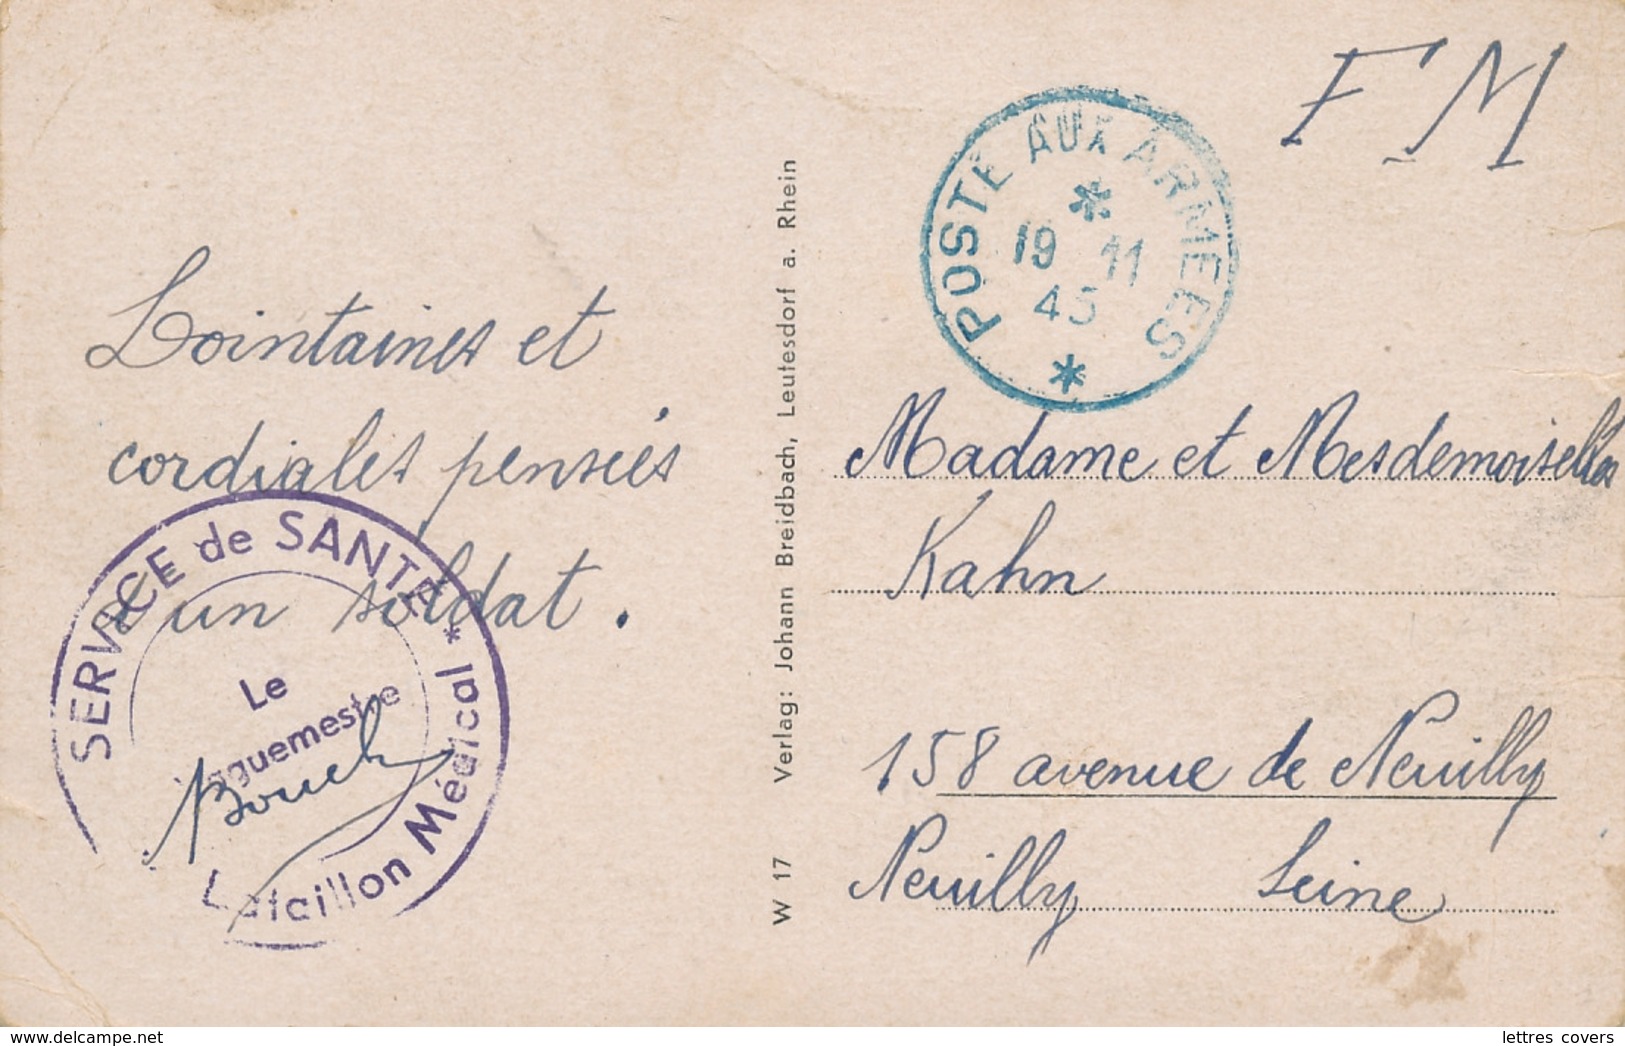 F M
POSTE AUX ARMEES
19 11
45
Lointaines et
cordiales pensées
d'un soldat.
SERVICE de SANTE * Bataillon Médical
Le
Vaguemestre
Madame et Mesdemoiselles
Kahn
158 avenue de Neuilly
Neuilly Seine
W 17 Verlag: Johann Breidbach, Leutesdorf a. Rhein
www.delcampe.net
lettres covers